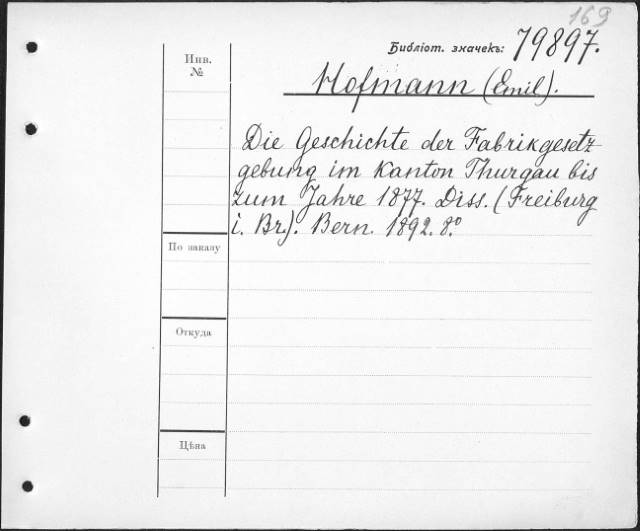 169
Библіот. значекъ: 79897.
Инв.
№
Hofmann (Emil).
Die Geschichte der Fabrikgesetz-
gebung im Kanton Thurgau bis
zum Jahre 1877. Diss. (Freiburg
i. Br.). Bern. 1892. 8.°
По заказу
Откуда
Цѣна